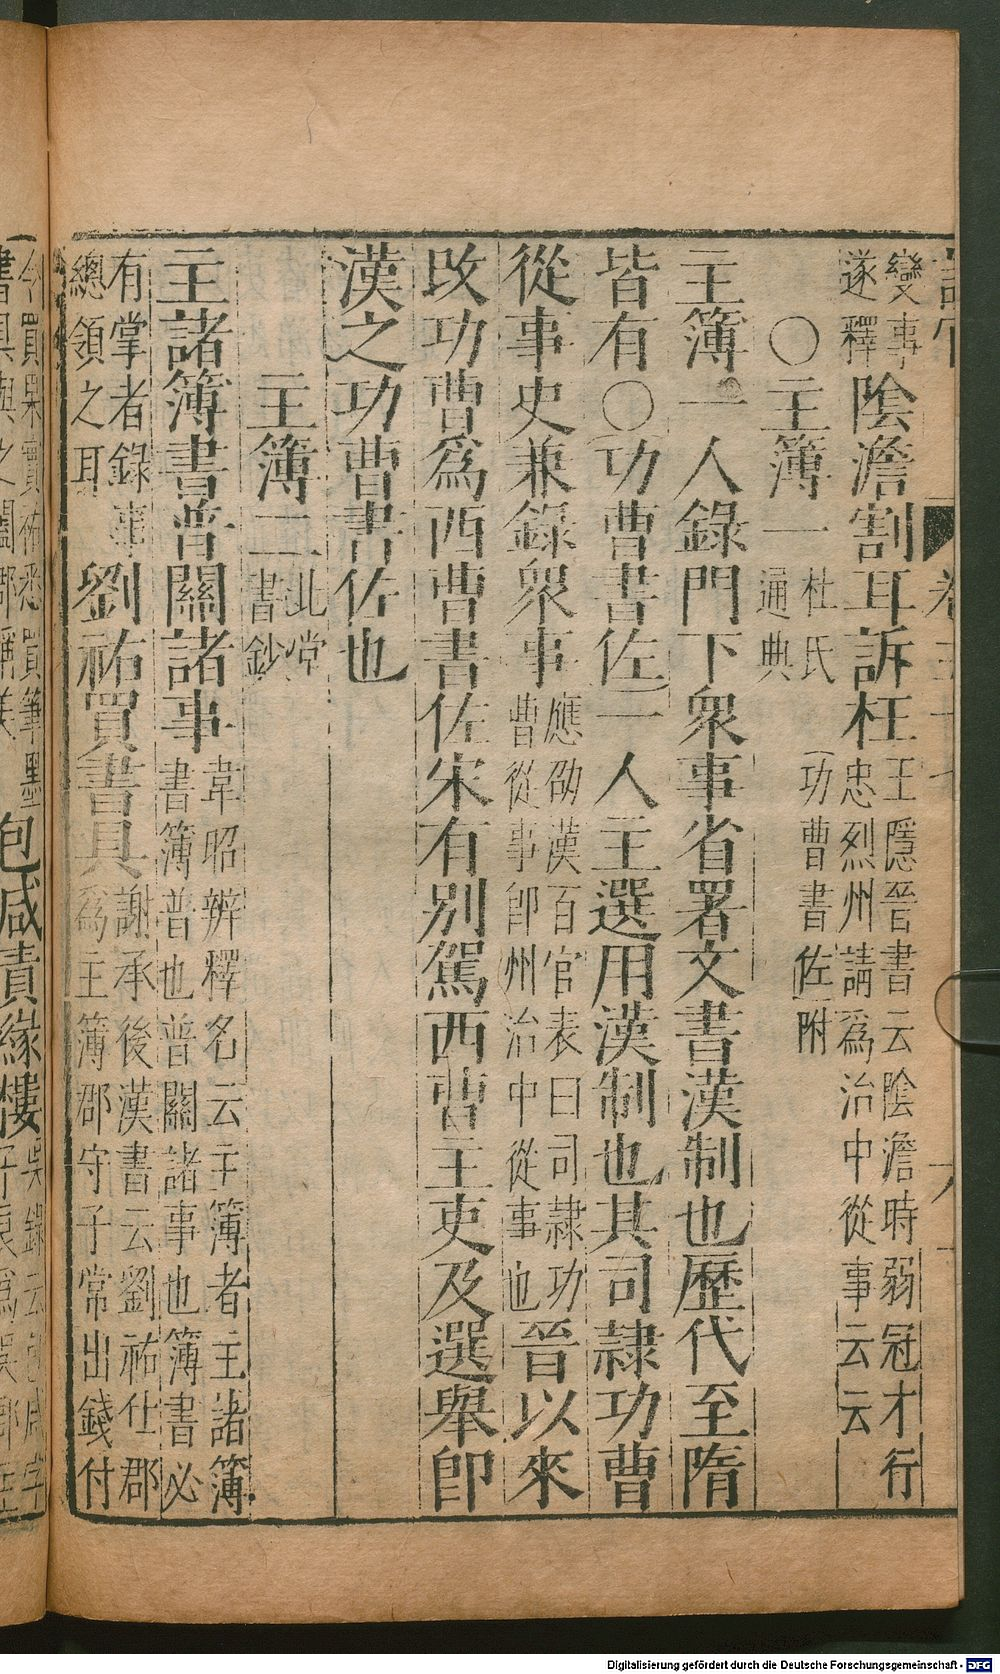 變事
遂釋
陰澹割耳訴枉
王隱晉書云陰澹時弱冠才行
忠烈州請爲治中從事云云
〇主簿一
杜氏
通典
功曹書佐附
主簿一人錄門下衆事省署文書漢制也歷代至隋
皆有〇功曹書佐一人主選用漢制也其司隷功曹
從事史兼錄衆事
應劭漢百官表曰司隷功
曹從事卽州治中從事也
晉以來
改功曹爲西曹書佐宋有别駕西曹主吏及選舉卽
漢之功曹書佐也
主簿二
北堂
書鈔
主諸簿書普關諸事
韋昭辨釋名云主簿者主諸簿
書簿普也普關諸事也簿書必
有掌者錄事
總領之耳
劉祐買書具
謝承後漢書云劉祐仕郡
爲主簿郡守子常出錢付
令買果實祐悉買筆墨
書具與之
包咸責緣樓
Digitalisierung gefördert durch die Deutsche Forschungsgemeinschaft - DFG